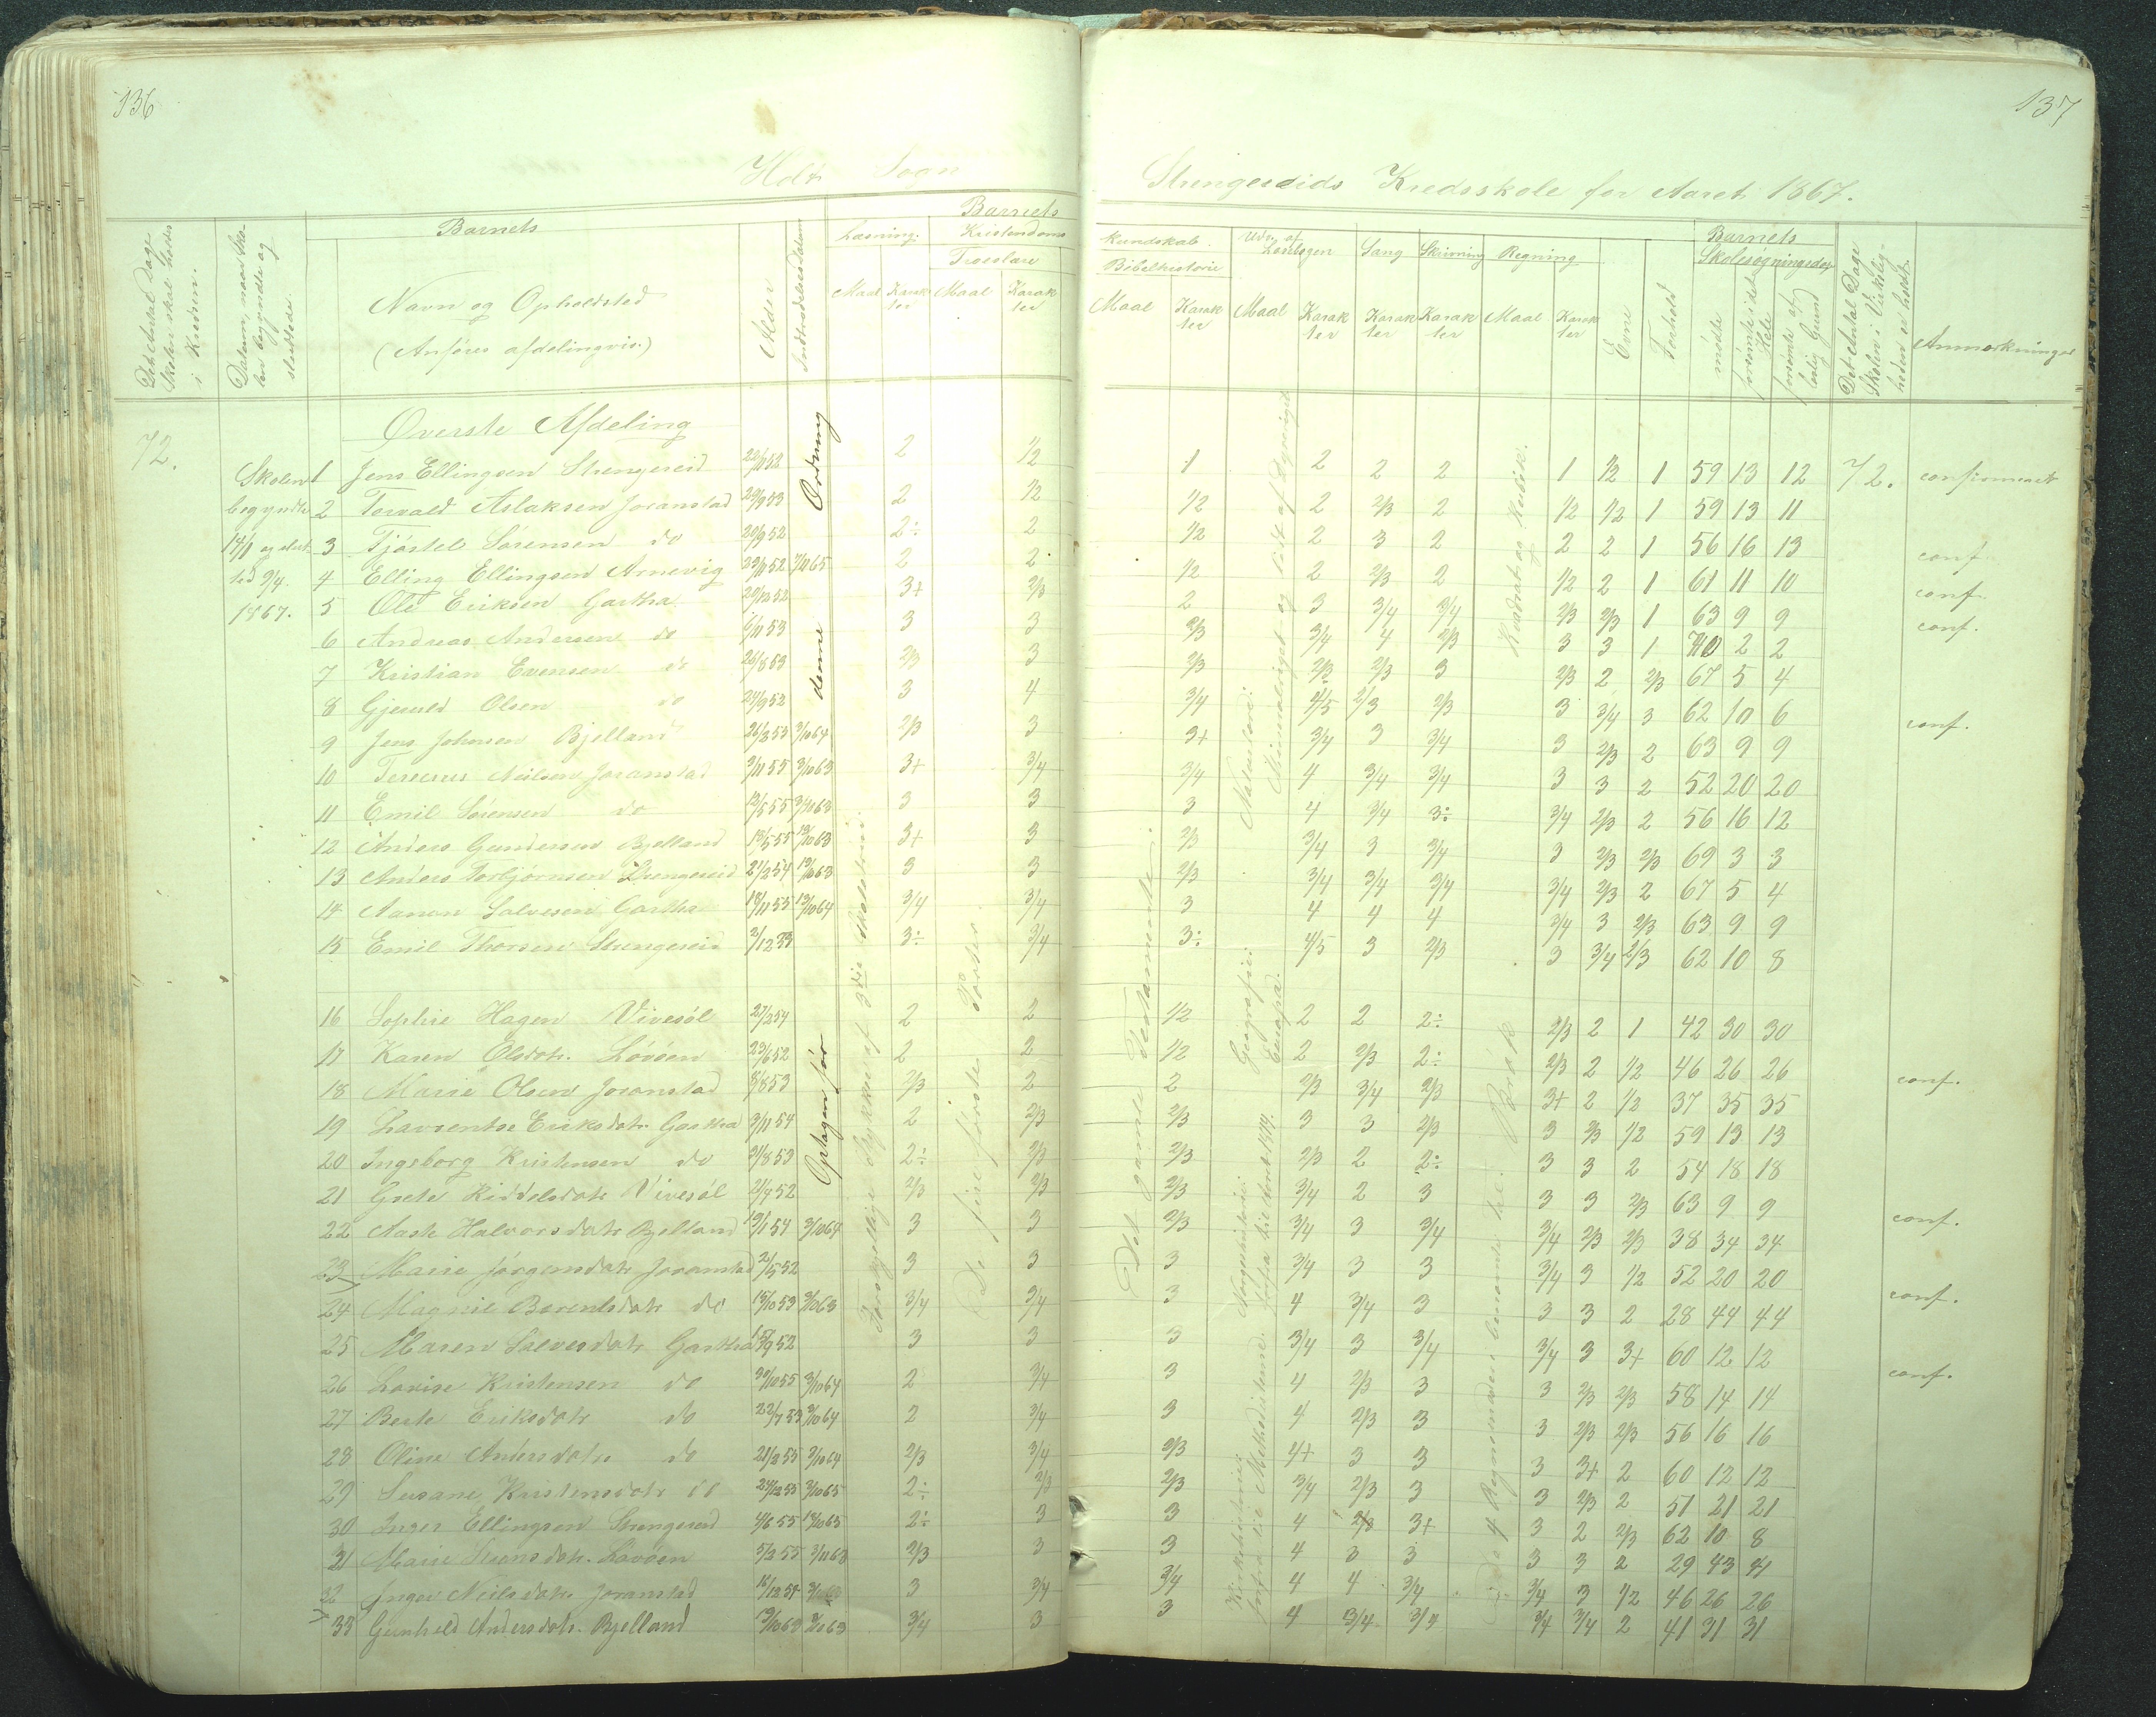 136
Holt Sogn
Det Antal Dage Skolen skal holdes i Kredsen.
Datum, naar Skolen begyndte og sluttede.
Barnets
Navn og Opholdsted
(Anføres afdelingvis.)
Alder
Indtrædelsesdatum
Læsning.
Maal
Karakter
Barnets
Kristendoms
Troeslære
Maal
Karakter
Øverste Afdeling
72.
Skolen begyndte 14/1 og slutted 9/4. 1867.
1 Jens Ellingsen Strengereid 22/11 52 2 1/2
2 Torvald Aslaksen Joranstad 29/9 53 2 1/2
3 Tjøstel Sørensen do 20/9 52 2÷ 2
4 Elling Ellingsen Arnevig 29/11 52 7/11 65 2 2
5 Ole Eriksen Gartha 29/12 52 3+ 2/3
6 Andreas Andersen do 1/11 53 3 3
7 Kristian Evensen do 26/8 53 2/3 3
8 Gjeruld Olsen do 24/9 52 3 4
9 Jens Johnsen Bjelland 26/3 53 3/10 64 2/3 3
10 Terserus Neilsen Joranstad 9/11 55 3/10 63 3+ 3/4
11 Emil Sørensen do 12/5 55 3/10 63 3 3
12 Anders Gundersen Bjelland 13/5 55 13/10 63 3+ 3
13 Anders Torbjørnsen Strengereid 21/2 54 13/10 63 3 3
14 Aanon Salvesen Gartha 18/11 55 13/10 64 3/4 3/4
15 Emil Thorsen Strengereid 2/12 53 3÷ 3/4
16 Sophie Hagen Vivesøl 27/2 54 2 2
17 Karen Olsdotr. Løvøen 23/6 52 2 2
18 Marie Olsen Joranstad 8/8 53 2/3 2
19 Lavrentse Eriksdotr. Gartha 3/11 54 2 2/3
20 Ingeborg Kristensen do 21/8 53 2÷ 2/3
21 Grete Kiddelsdotr Vivesøl 21/4 52 2/3 2/3
22 Aaste Halvorsdotr Bjelland 13/1 54 3/10 64 3 3
23 Marie Jørgensdotr Joranstad 21/5 52 3 3
24 Magnil Berentsdotr do 15/10 53 3/10 63 3/4 3/4
25 Maren Salvesdotr Gartha 15/9 52 3 3
26 Lovise Kristensen do 30/10 55 3/10 64 2 3/4
27 Berte Eriksdotr do 22/7 53 3/10 64 2 3/4
28 Oline Andersdotr do 21/2 55 3/10 64 2/3 3/4
29 Susane Kristensdotr do 24/12 55 3/10 65 2÷ 2/3
30 Inger Ellingsen Strengereid 4/6 55 13/10 65 2÷ 3
31 Marie Svensdotr. Løvøen 5/2 55 3/11 63 2/3 3
32 Inger Neilsdotr Joranstad 16/12 54 3 3/4
33 Gunhild Andersdotr. Bjelland 13/10 63 3/10 63 3/4 3
Optagen før denne Ordning
Forskjellige Stykker af 3die Skoletrin.
De fire første Parter.
137
Strengereids Kredsskole for Aaret 1867.
kundskab.
Bibelhistorie
Maal
Karakter
Udv. af Læsebogen
Maal
Karakter
Sang
Karakter
Skrivning
Karakter
Regning
Maal
Karakter
Evne
Forhold
Barnets
Skolesøgningsdage
mødte
forsømte i det Hele
forsømte af lovlig Grund
Det Antal Dage Skolen i Virkeligheden er holdt.
Anmærkninger
1 2 2 2 1 1/2 1 59 13 12 72. confirmeret
1/2 2 2/3 2 1/2 1/2 1 59 13 11
1/2 2 3 2 2 2 1 56 16 13 conf.
1/2 2 2/3 2 1/2 2 1 61 11 10 conf.
2 3 3/4 3/4 2/3 2/3 1 63 9 9 conf.
2/3 3/4 4 2/3 3 3 1 70 2 2
2/3 2/3 2/3 3 2/3 2 2/3 67 5 4
3/4 4/5 2/3 2/3 3 3/4 3 62 10 6 conf.
3+ 3/4 3 3/4 3 2/3 2 63 9 9
3/4 4 3/4 3/4 3 3 2 52 20 20
3 4 3/4 3÷ 3/4 2/3 2 56 16 12
2/3 3/4 3 3/4 3 2/3 2/3 69 3 3
2/3 3/4 3/4 3/4 3/4 2/3 2 67 5 4
3 4 4 4 3/4 3 2/3 63 9 9
3÷ 4/5 3 2/3 3 3/4 2/3 62 10 8
1/2 2 2 2÷ 2/3 2 1 42 30 30
1/2 2 2/3 2÷ 2/3 2 1/2 46 26 26 conf.
2 2/3 3/4 2/3 3+ 2 1/2 37 35 35
2/3 3 3 2/3 3 2/3 1/2 59 13 13
2/3 2/3 2 2÷ 3 3 2 54 18 18
2/3 3/4 2 3 3 3 2/3 63 9 9 conf.
2/3 3/4 3 3/4 3/4 2/3 2/3 38 34 34
3 3/4 3 3 3/4 3 1/2 52 20 20 conf.
3 4 3/4 3 3 3 2 28 44 44
3 3/4 3 3/4 3/4 3 3+ 60 12 12 conf.
3 4 2/3 3 3 2/3 2/3 58 14 14
3 4 2/3 3 3 2/3 2/3 56 16 16
2/3 4+ 3 3 3 3+ 2 60 12 12
2/3 3/4 2/3 3 3 2/3 2 51 21 21
3 4 2/3 3+ 3 2 2/3 62 10 8
3 4 3 3 3 3 2 29 43 41
3/4 4 4 3/4 3/4 3 1/2 46 26 26
3 4 3/4 3/4 3/4 3/4 2 41 31 31
Det gamle Testamente.
Kirkehistorie: fra Methodisterne.
Norgeshistorie: fra til 1814.
Geografie: Europa.
Naturlære: Mineralriget og lidt af Dyreriget
De 4 Regnemaader i benævnte hele. Brøk
Kvadrat og Kubik.